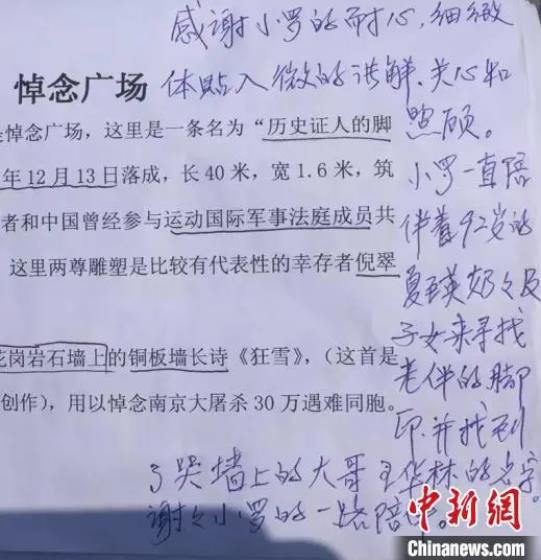 感谢小罗的耐心,细微
体贴入微的讲解、关心和
照顾。
小罗一直陪
伴着92岁的
夏玉英奶々及
子女来寻找
老伴的脚
印.并找到
了哭墙上的大哥王华林的名字。
谢々小罗的一路陪
悼念广场
是悼念广场，这里是一条名为“历史证人的脚
年12月13日落成，长40米，宽1.6米，筑
者和中国曾经参与运动国际军事法庭成员共
这里两尊雕塑是比较有代表性的幸存者倪翠
花岗岩石墙上的铜板墙长诗《狂雪》，（这首是
创作），用以悼念南京大屠杀30万遇难同胞。
中新网
Chinanews.com